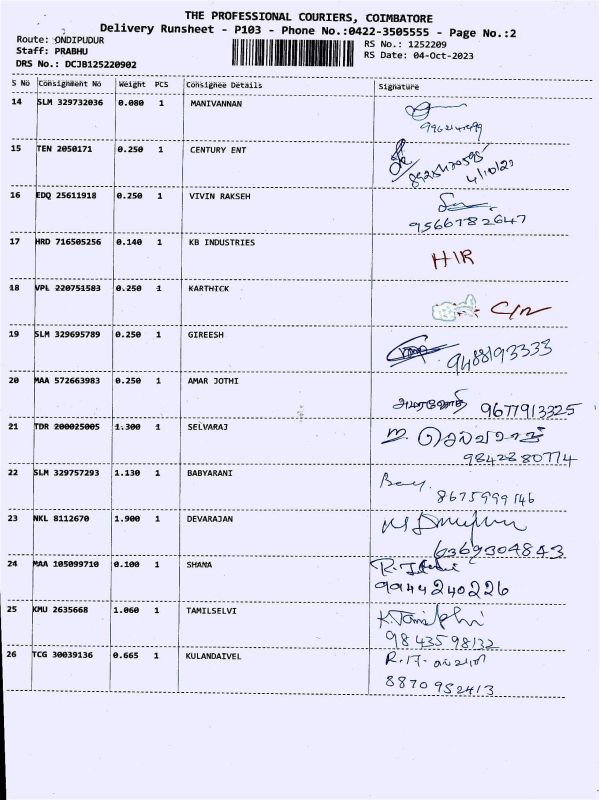 THE PROFESSIONAL COURIERS, COIMBATORE
Delivery Runsheet - P103 - Phone No.:0422-3505555 - Page No.:2
Route: ONDIPUDUR
RS No.: 1252209
Staff: PRABHU
RS Date: 04-Oct-2023
DRS No.: DCJB125220902
S No Consignment No Weight PCS Consignee Details Signature
14 SLM 329732036 0.080 1 MANIVANNAN
15 TEN 2050171 0.250 1 CENTURY ENT
4/10/23
16 EDQ 25611918 0.250 1 VIVIN RAKSEH
9566782647
17 HRD 716505256 0.140 1 KB INDUSTRIES
HIR
18 VPL 220751583 0.250 1 KARTHICK
C/N
19 SLM 329695789 0.250 1 GIREESH
9488193333
20 MAA 572663983 0.250 1 AMAR JOTHI
அமரஜோதி 9677913325
21 TDR 200025005 1.300 1 SELVARAJ
ம. செல்வராஜ்
9842380774
22 SLM 329757293 1.130 1 BABYARANI
8675999146
23 NKL 8112670 1.900 1 DEVARAJAN
6369304843
24 MAA 105099710 0.100 1 SHANA
9944240226
25 KMU 2635668 1.060 1 TAMILSELVI
K.Tamilselvi
9843598132
26 TCG 30039136 0.665 1 KULANDAIVEL
8870952413